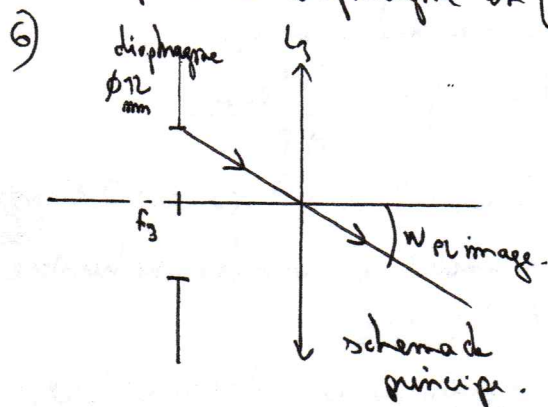 6)
diaphragme
φ12
mm
L3
F3
W PL image.
schéma de
principe.